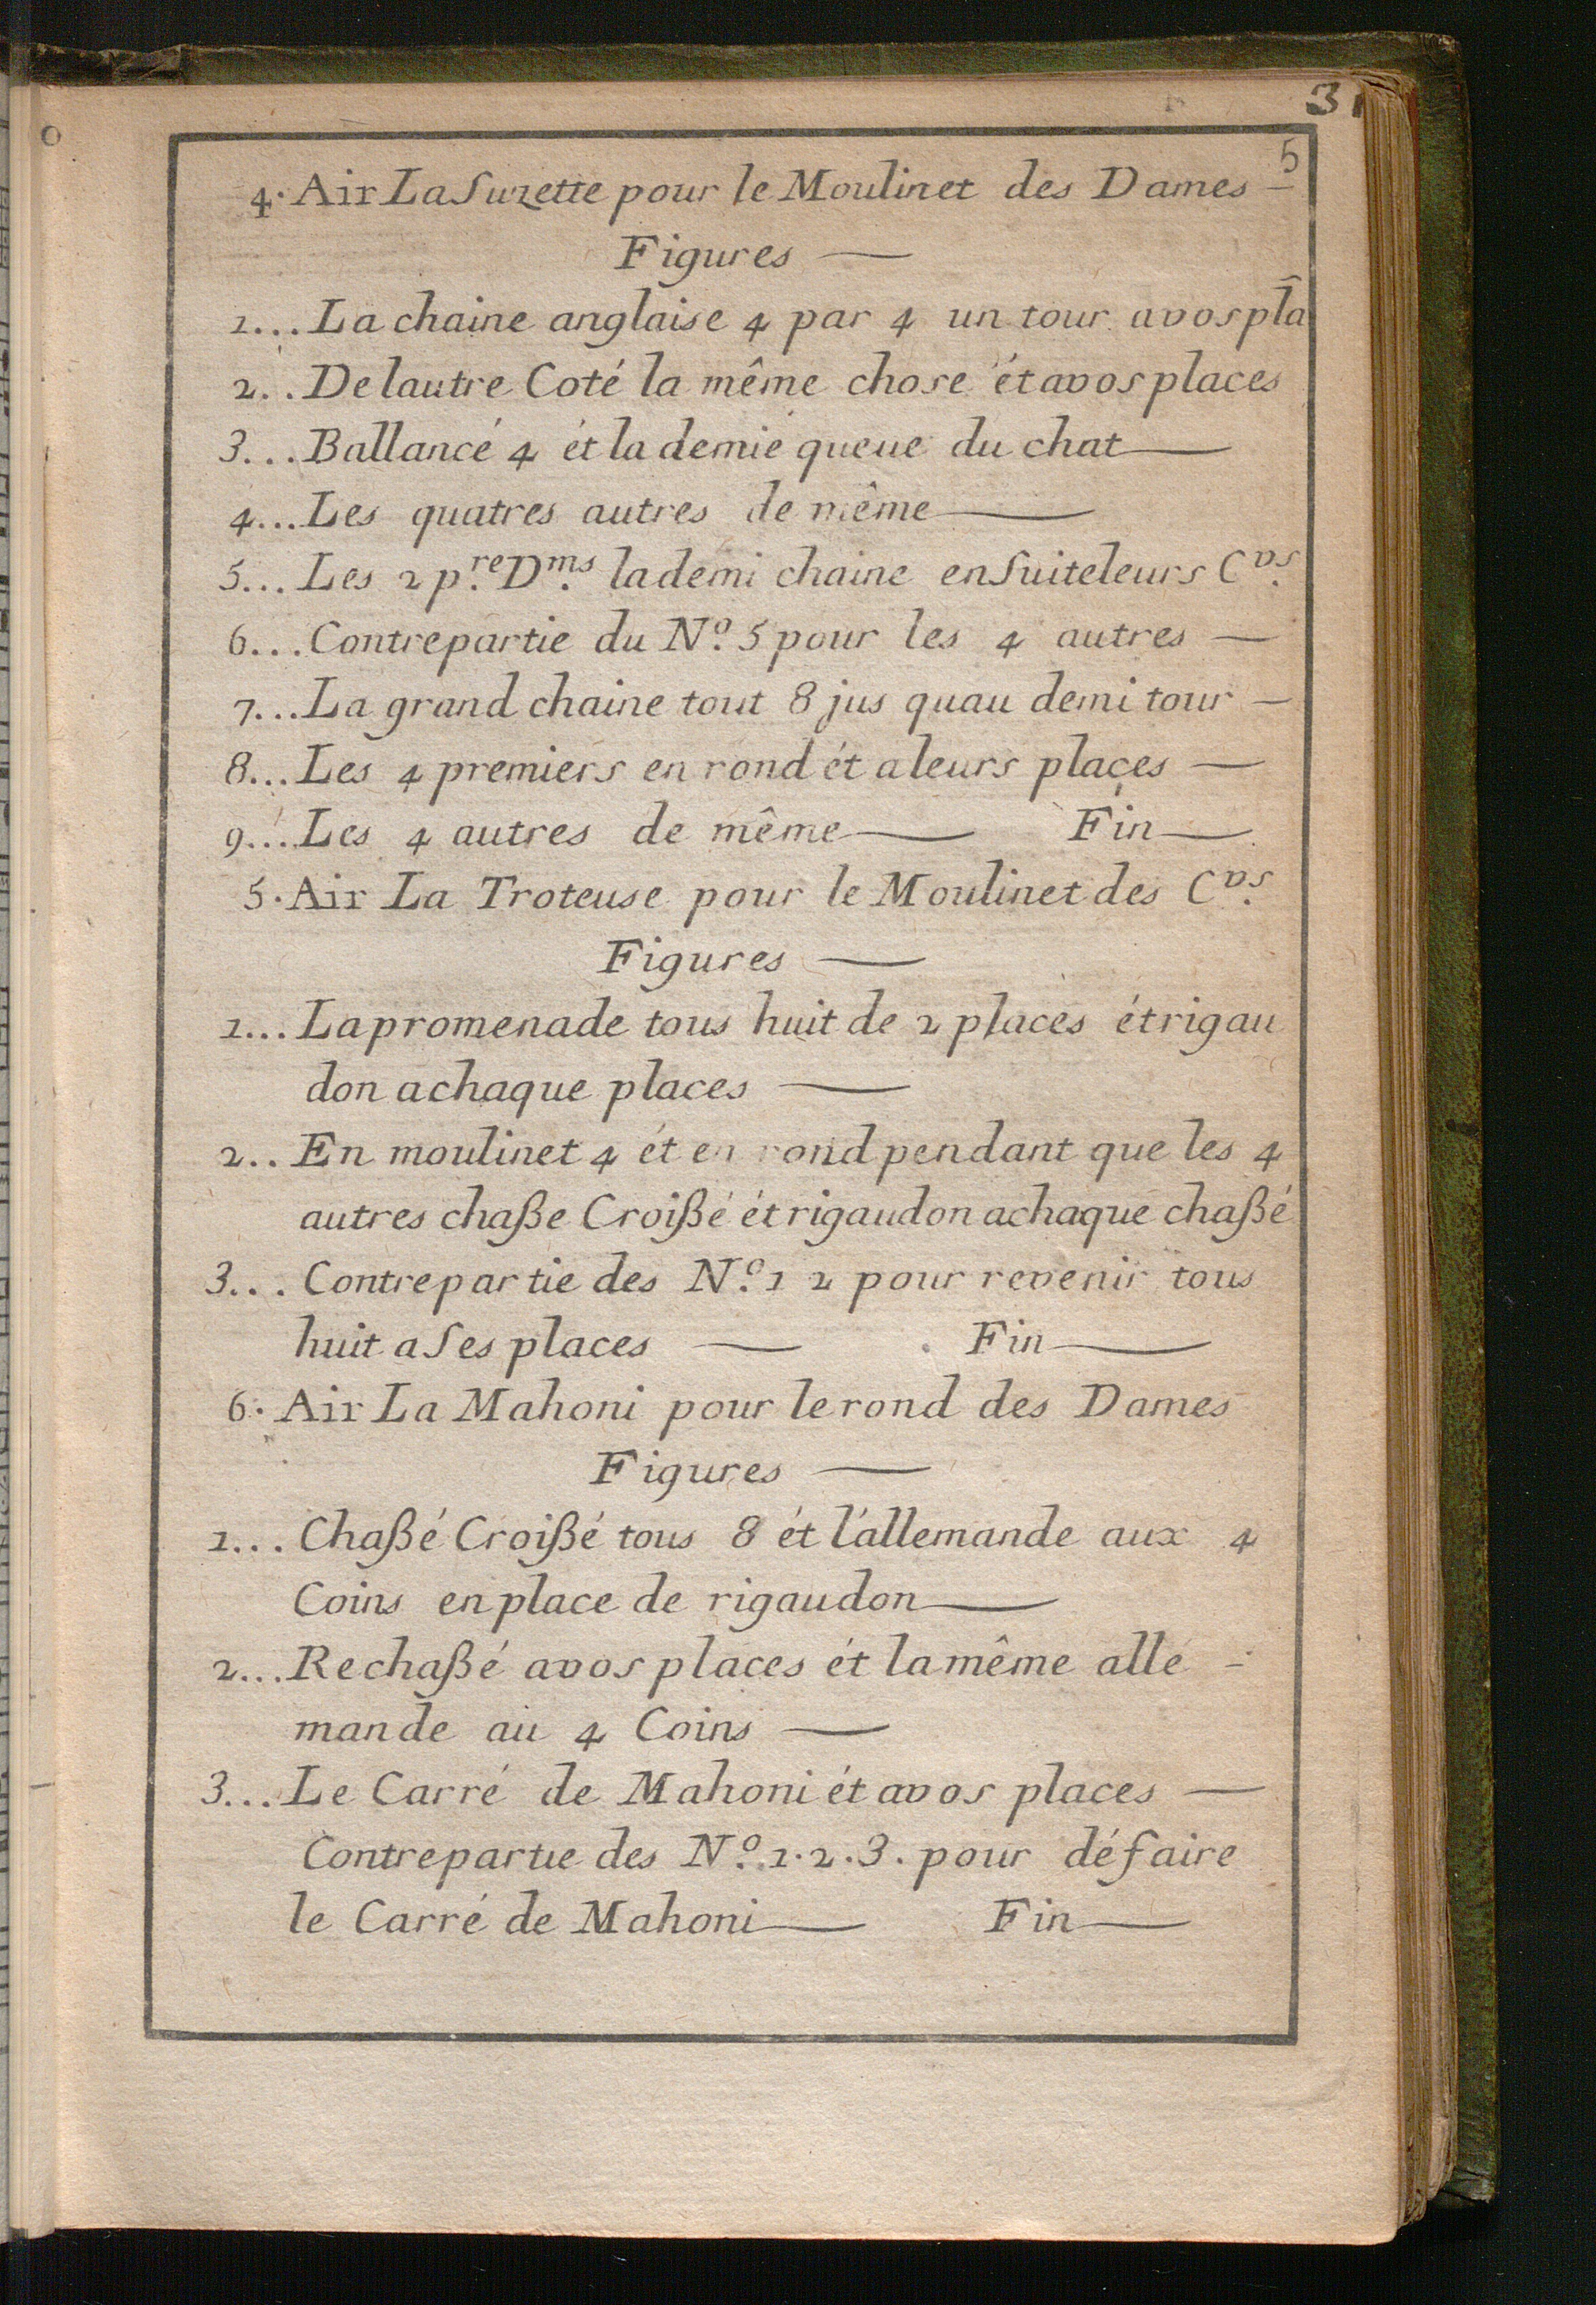 31
5
4. Air La Suzette pour le Moulinet des Dames —
Figures —
1... La chaine anglaise 4 par 4 un tour avos pla
2.. De lautre Coté la même chose ét avos places
3... Ballancé 4 ét la demie queue du chat —
4... Les quatres autres de même —
5... Les 2 p.re D.ms la demi chaine en Suite leurs C.vs
6... Contrepartie du N.o 5 pour les 4 autres —
7... La grand chaine tout 8 jus quau demi tour —
8... Les 4 premiers en rond ét a leurs places —
9... Les 4 autres de même — Fin —
5. Air La Troteuse pour le Moulinet des C.vs
Figures —
1... La promenade tous huit de 2 places ét rigau
don a chaque places —
2.. En moulinet 4 ét en rond pendant que les 4
autres chaße Croißé ét rigaudon a chaque chaßé
3... Contrepartie des N.o 1 2 pour revenir tous
huit a Ses places — Fin —
6. Air La Mahoni pour le rond des Dames
Figures —
1... Chaßé Croißé tous 8 ét l'allemande aux 4
Coins en place de rigaudon —
2... Rechaßé avos places ét la même alle -
mande au 4 Coins —
3... Le Carré de Mahoni ét avos places —
Contrepartie des N.o 1.2.3. pour défaire
le Carré de Mahoni — Fin —